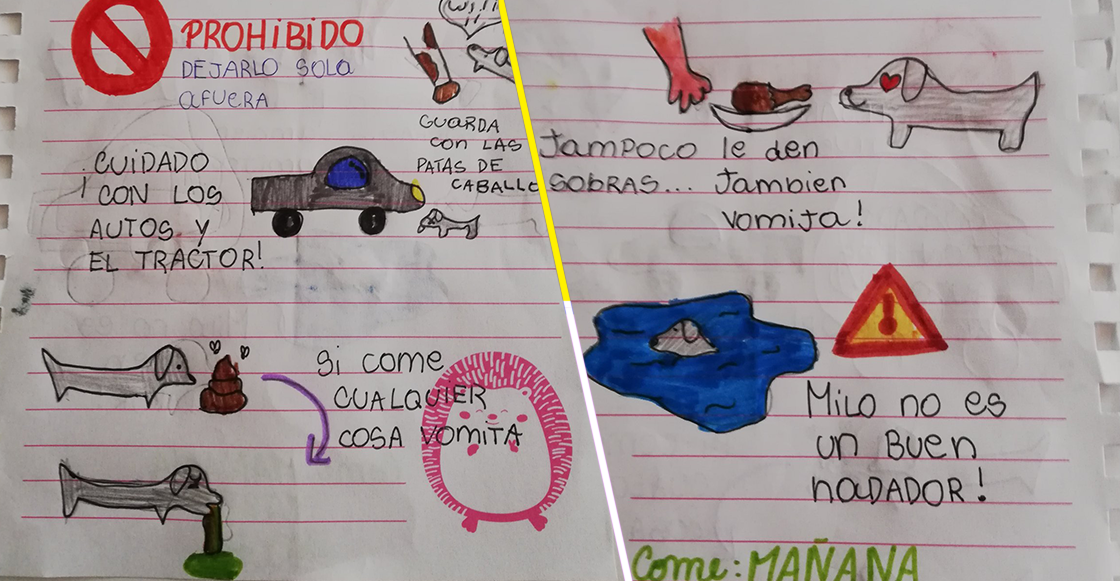 PROHIBIDO
DEJARLO SOLO
AFUERA
GUARDA
CON LAS
PATAS DE
CABALLO
¡CUIDADO
CON LOS
AUTOS Y
EL TRACTOR!
Si come
CUALQUIER
COSA VOMITA
Tampoco le den
SOBRAS... Tambien
vomita!
Milo no es
un Buen
naDADOR!
Come: MAÑANA